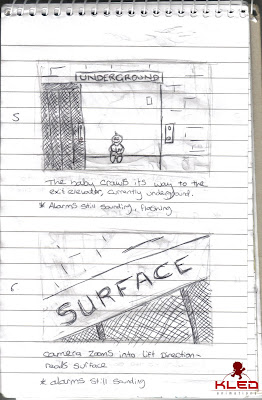 UNDERGROUND
5
The baby crawls its way to the
exit elevator, currently underground.
* Alarms still sounding, flashing
SURFACE
camera zooms into lift Direction -
reads surface
* alarms still sounding
KLED
animations